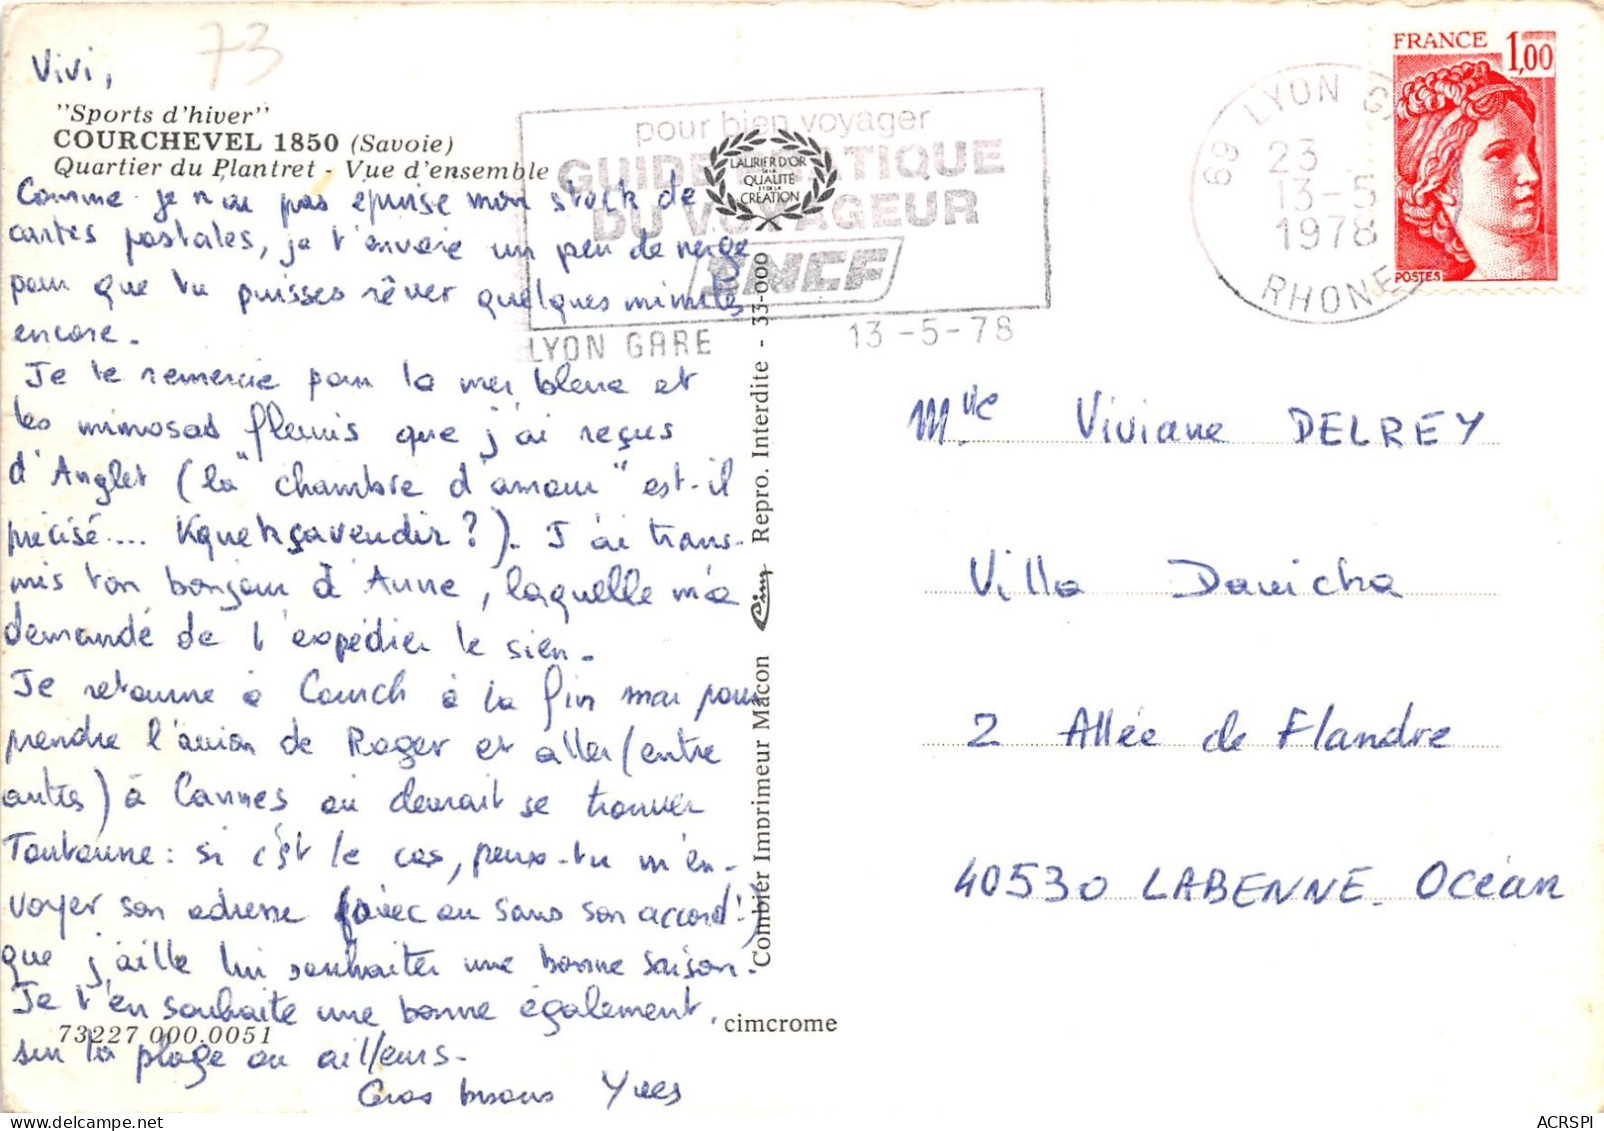 73
Vivi,
"Sports d'hiver"
COURCHEVEL 1850 (Savoie)
Quartier du Plantret - Vue d'ensemble
Comme je n'ai pas épuisé mon stock de
cartes postales, je t'envoie un peu de neige
pour que tu puisses rêver quelques minutes
encore.
Je te remercie pour la mer bleue et
les mimosas fleuris que j'ai reçus
d'Anglet (la "chambre d'amour" est-il
précisé.... Kquehçavendir?). J'ai trans-
mis ton bonjour à Anne, laquelle m'a
demandé de t'expédier le sien.
Je retourne à Courch à la fin mai pour
prendre l'avion de Roger et aller (entre
autres) à Cannes où devrait se trouver
Toutoune : si c'est le cas, peux-tu m'en-
voyer son adresse (avec ou sans son accord!)
que j'aille lui souhaiter une bonne saison.
Je t'en souhaite une bonne également,
73227 000.0051
sur la plage ou ailleurs.
Gros bisous Yves
pour bien voyager
GUIDE PRATIQUE
DU VOYAGEUR
SNCF
LYON GARE 13-5-78
LAURIER D'OR
DE LA
QUALITÉ
ET DE LA
CRÉATION
Combier Imprimeur Mâcon Cim Repro. Interdite - 33-000
cimcrome
69 LYON
23
13-5
1978
RHONE
FRANCE 1,00
POSTES
Mlle Viviane DELREY
Villa Davicha
2 Allée de Flandre
40530 LABENNE. Océan
ACRSPI